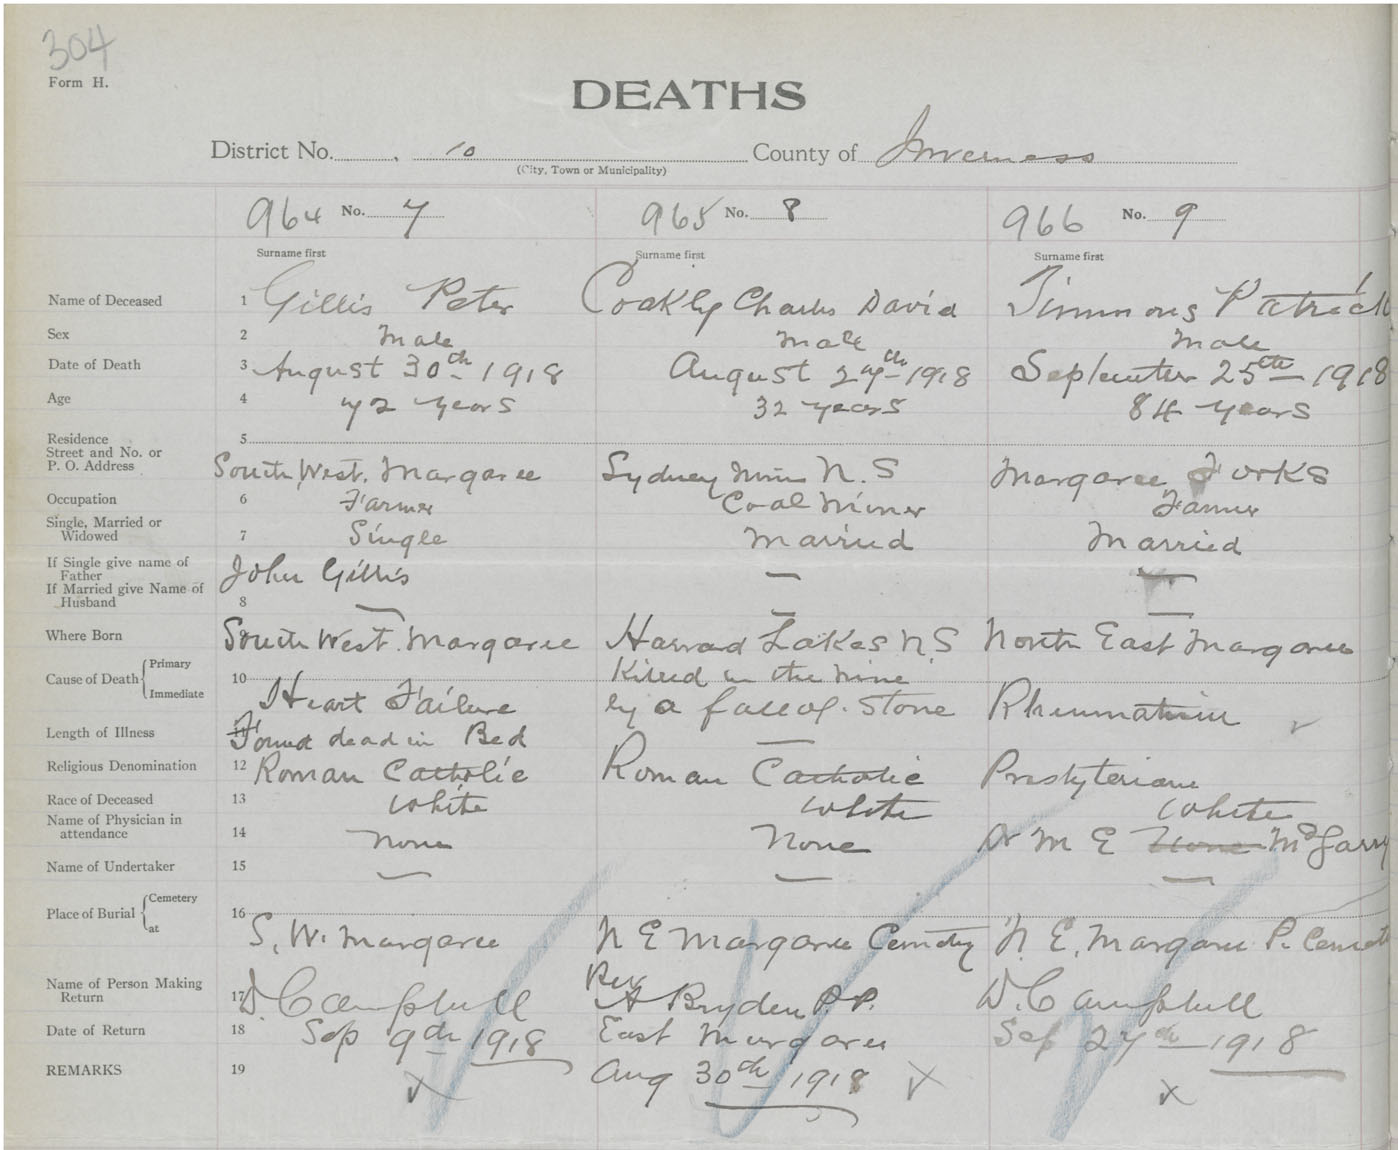 304
Form H.
DEATHS
District No. 10 County of Inverness
(City, Town or Municipality)
964 No. 7 965 No. 8 966 No. 9
Surname first Surname first Surname first
Name of Deceased 1 Gillis Peter Coakly Charles David Timmons Patrick
Sex 2 Male Male Male
Date of Death 3 August 30th 1918 August 27th 1918 September 25th 1918
Age 4 72 years 32 years 84 years
Residence 5
Street and No. or
P. O. Address South West. Margaree Sydney Mines N. S Margaree Forks
Occupation 6 Farmer Coal Miner Farmer
Single, Married or
Widowed 7 Single Married Married
If Single give name of
Father John Gillis —
If Married give Name of
Husband 8 — — —
Where Born South West. Margaree Lakes N. S North East Margaree
Cause of Death Primary 10 Killed in the mine
Immediate Heart Failure by a fall of. Stone Rheumatism
Length of Illness 11 Found dead in Bed —
Religious Denomination 12 Roman Catholic Roman Catholic Presbyterian
Race of Deceased 13 White White White
Name of Physician in
attendance 14 None None Dr M E None McGarry
Name of Undertaker 15 — — —
Place of Burial Cemetery 16
at S. W. Margaree N E Margaree Cemetry N. E. Margaree P. Cemet
Name of Person Making
Return 17 D. Campbell Rev A Bryden P. P. D. Campbell
Date of Return 18 Sep 9th 1918 East Margaree Sep 27th 1918
REMARKS 19 Aug 30th 1918